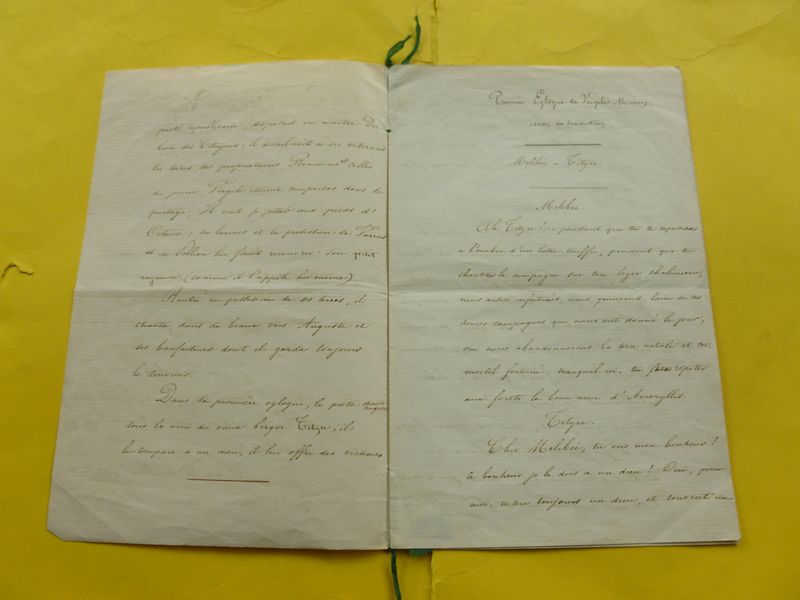 parti républicain, disposait en maître des
biens des Citoyens; il distribuait à ses vétérans
les terres des propriétaires Romains et celles
du jeune Virgile étaient comprises dans le
partage. Il vint se jetter aux pieds de
Octave; ses larmes et la protection de Varus
et de Pollion lui firent recouvrer son petit
royaume (comme il l'appelle lui même)
Rentré en possession de ses terres, il
chanta dans de beaux vers Auguste et
ses bienfaiteurs dont il garda toujours
le souvenir.
Dans sa première eglogue, le poète chante Auguste
sous le nom du vieux berger Tityre; il
le compare à un dieu, il lui offre des victimes
Première Eglogue de Virgile Maron
essai de traduction
Mélibée - Tityre
Mélibée
Ah Tityre! pendant que tu te reposes
à l'ombre d'un hêtre touffu, pendant que tu
chantes la campagne sur ton léger chalumeau,
nous autres infortunés, nous gémirons loin de ces
douces campagnes qui nous ont donné le jour;
oui nous abandonnerons la terre natale et toi
mortel fortuné, tranquil ici, tu fais répéter
aux forêts le beau nom d'Amaryllis.
Tityre.
Cher Mélibée, tu vois mon bonheur!
ce bonheur je le dois à un dieu! Oui, pour
moi, ce sera toujours un dieu, et souvent un